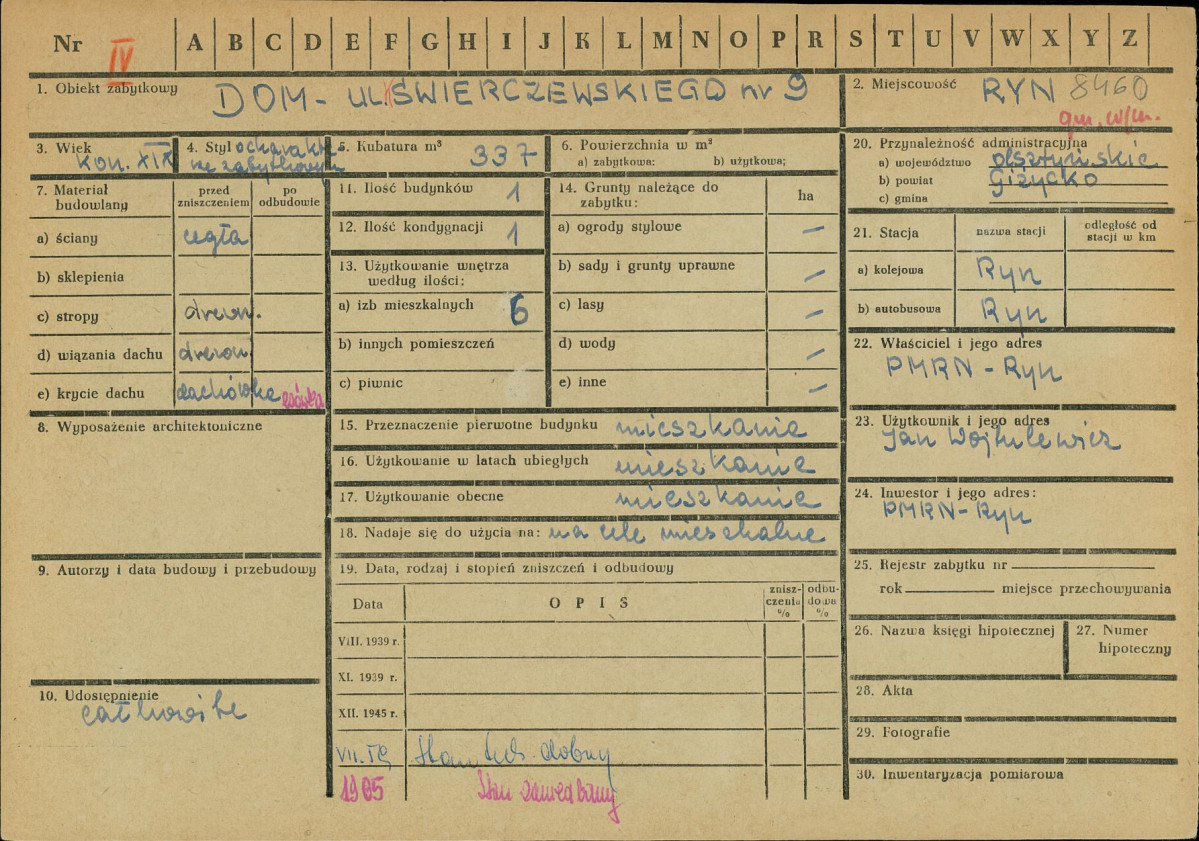 Nr IV A B C D E F G H I J K L M N O P R S T U V W X Y Z
1. Obiekt zabytkowy DOM - UL. ŚWIERCZEWSKIEGO nr 9
2. Miejscowość RYN 8460
gm. w/m.
3. Wiek kon. XIX
4. Styl o charakt.
ze zabytkowym
5. Kubatura m³ 337
6. Powierzchnia w m²
a) zabytkowa: b) użytkowa;
7. Materiał budowlany
przed zniszczeniem
po odbudowie
a) ściany cegła
b) sklepienia
c) stropy drewn.
d) wiązania dachu drewn.
e) krycie dachu dachówka esówka
8. Wyposażenie architektoniczne
9. Autorzy i data budowy i przebudowy
10. Udostępnienie
całkowite
11. Ilość budynków 1
12. Ilość kondygnacji 1
13. Użytkowanie wnętrza
według ilości:
a) izb mieszkalnych 6
b) innych pomieszczeń
c) piwnic
14. Grunty należące do
zabytku: ha
a) ogrody stylowe –
b) sady i grunty uprawne –
c) lasy –
d) wody –
e) inne –
15. Przeznaczenie pierwotne budynku mieszkanie
16. Użytkowanie w latach ubiegłych mieszkanie
17. Użytkowanie obecne mieszkanie
18. Nadaje się do użycia na: na cele mieszkalne
19. Data, rodzaj i stopień zniszczeń i odbudowy
Data
OPIS
znisz-
czenia
%
odbu-
dowa
%
VIII. 1939 r.
XI. 1939 r.
XII. 1945 r.
VII. 59 Stan tech. dobry
1965 Stan zaniedbany
20. Przynależność administracyjna
a) województwo olsztyńskie
b) powiat Giżycko
c) gmina
21. Stacja
nazwa stacji
odległość od
stacji w km
a) kolejowa Ryn
b) autobusowa Ryn
22. Właściciel i jego adres
PMRN - Ryn
23. Użytkownik i jego adres
Jan Wojtulewicz
24. Inwestor i jego adres:
PMRN - Ryn
25. Rejestr zabytku nr
rok miejsce przechowywania
26. Nazwa księgi hipotecznej
27. Numer
hipoteczny
28. Akta
29. Fotografie
30. Inwentaryzacja pomiarowa